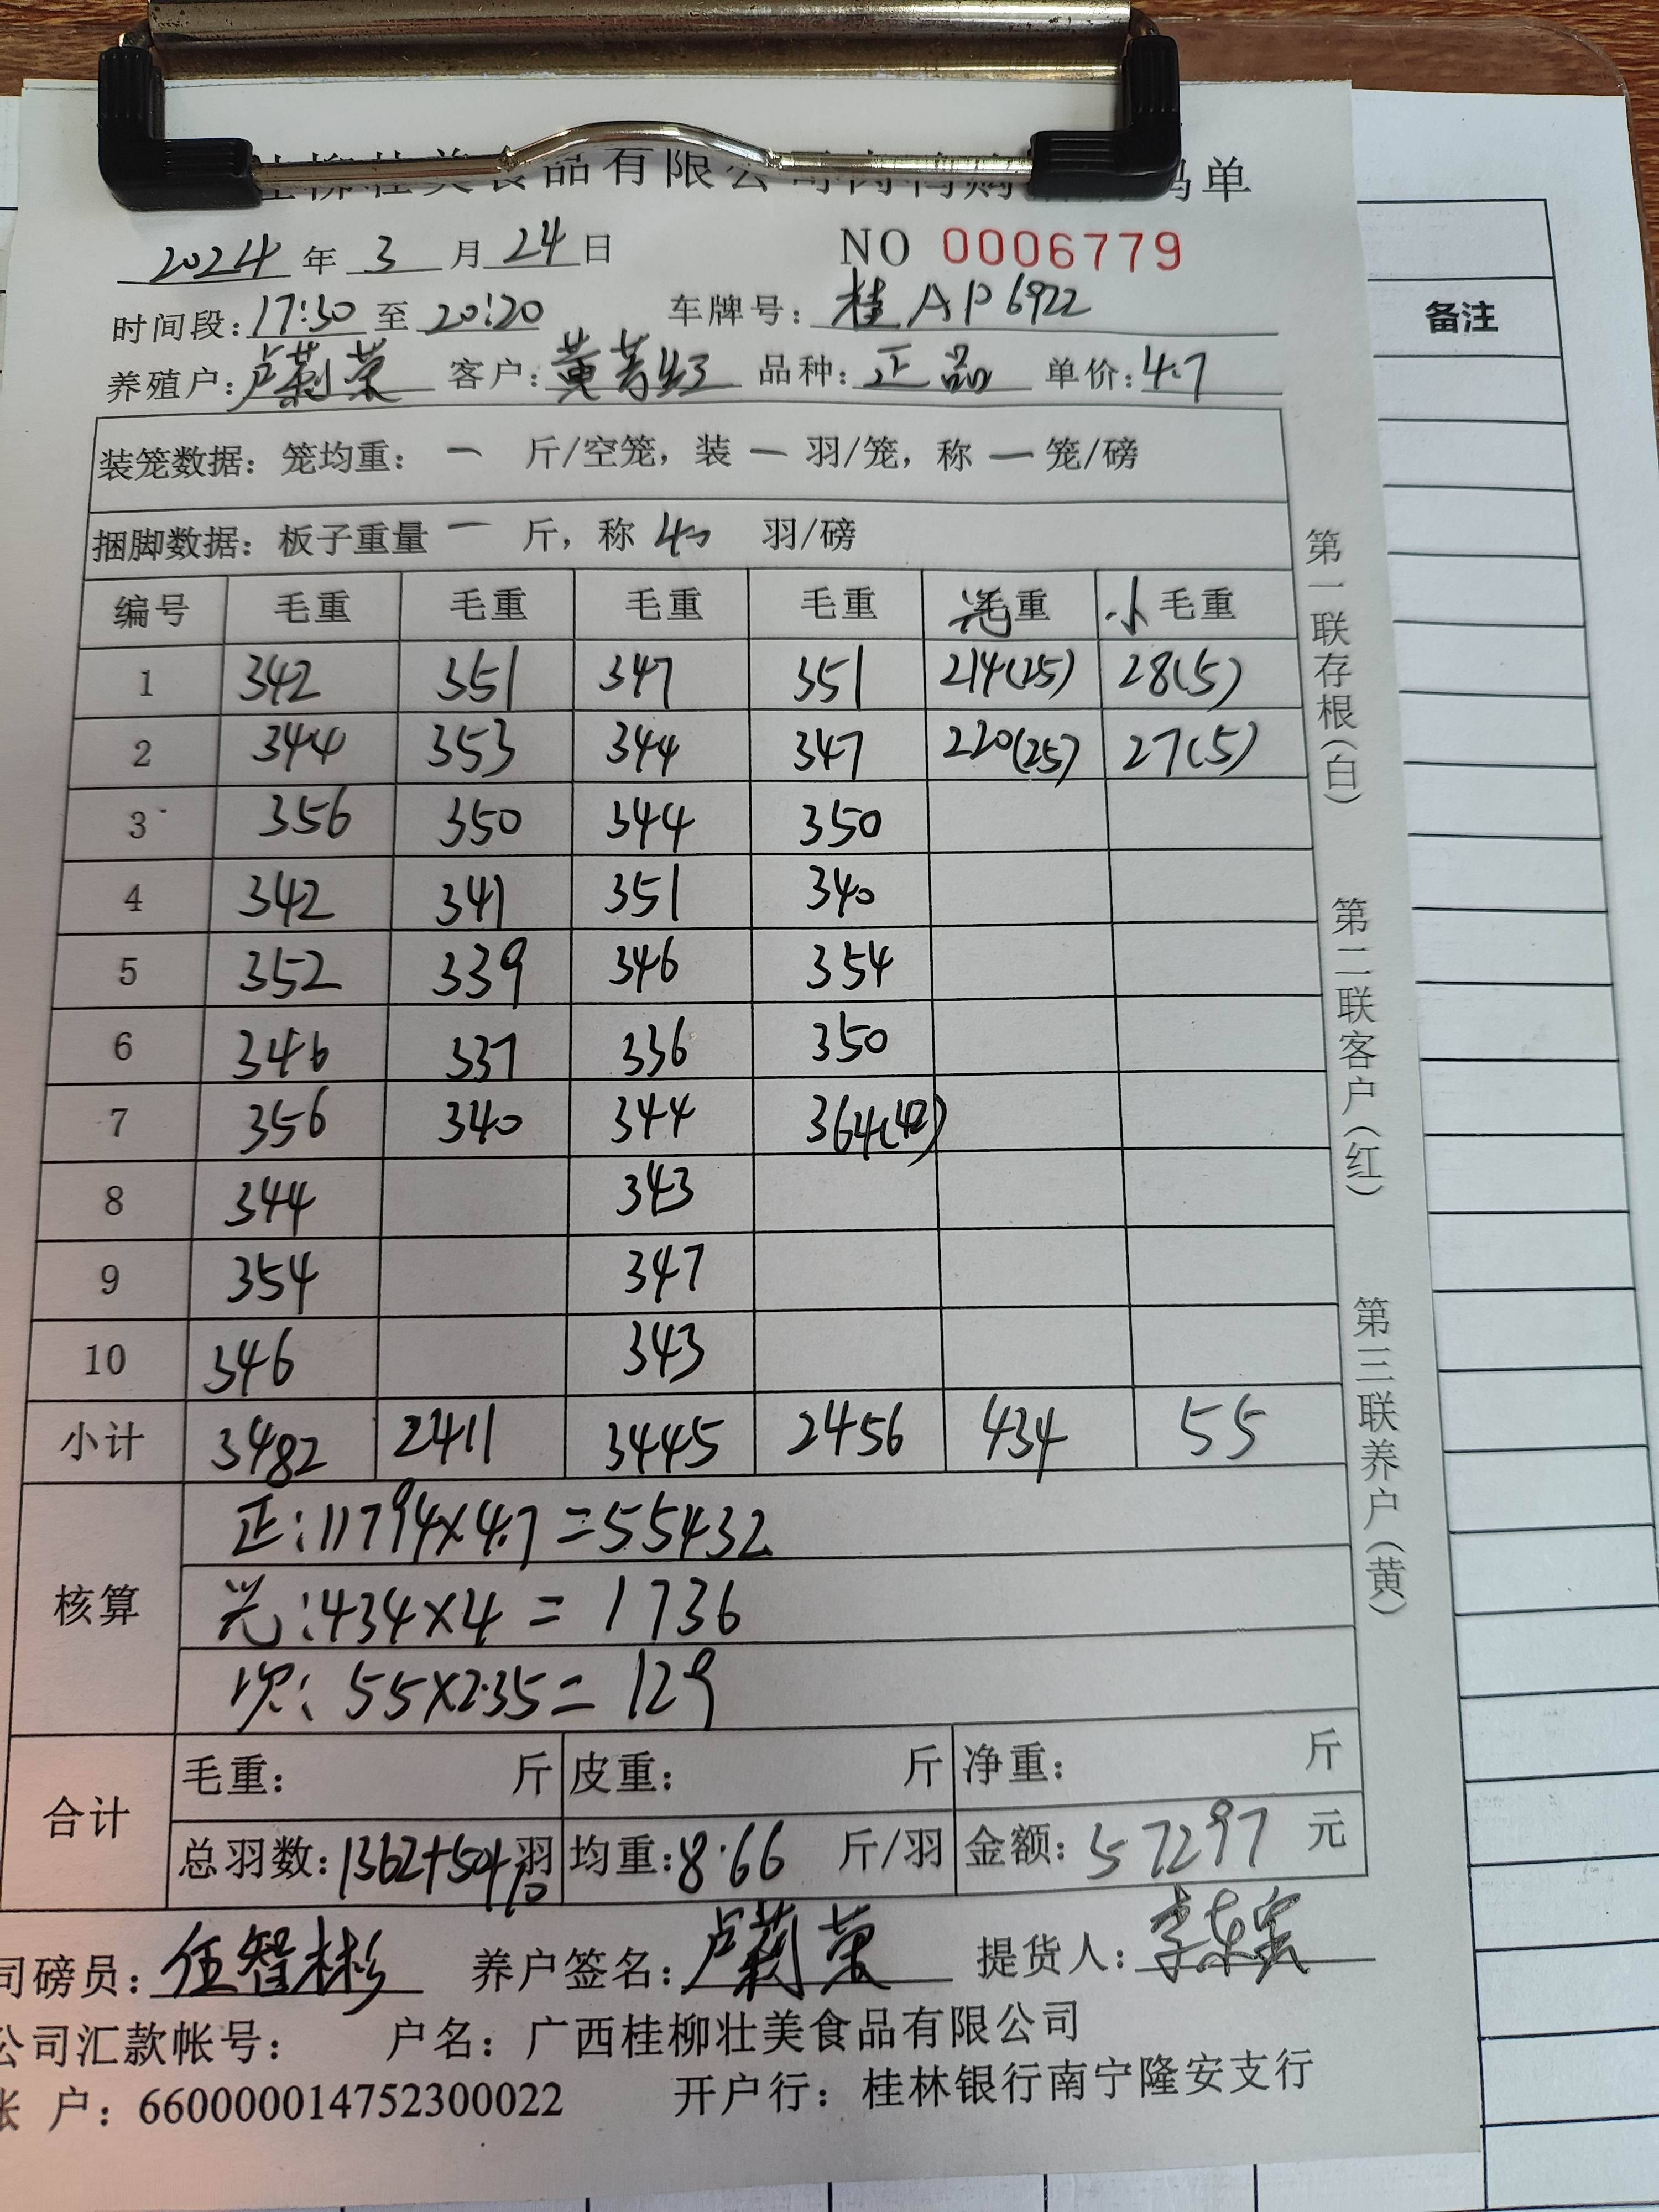 桂柳壮美食品有限公司肉鸭购 码单
2024年3月24日 NO 0006779
时间段:17:30至20:20 车牌号:桂AP6922
养殖户:卢莉荣 客户:黄芳红 品种:正品 单价:4.7
备注
装笼数据:笼均重: 一 斤/空笼,装 一 羽/笼,称 一 笼/磅
捆脚数据:板子重量 一 斤,称 40 羽/磅
编号 毛重 毛重 毛重 毛重 光毛重 小毛重
1 342 351 347 351 214(25) 28(5)
2 344 353 344 347 220(25) 27(5)
3 356 350 344 350
4 342 341 351 340
5 352 339 346 354
6 346 337 336 350
7 356 340 344 364(42)
8 344 343
9 354 347
10 346 343
小计 3482 2411 3445 2456 434 55
核算 正:11794×4.7=55432
光:434×4=1736
次:55×2.35=129
合计 毛重: 斤 皮重: 斤 净重: 斤
总羽数:1362+50+10羽 均重:8.66 斤/羽 金额:57297 元
司磅员:伍智彬 养户签名:卢莉荣 提货人:李东宾
公司汇款帐号: 户名:广西桂柳壮美食品有限公司
账 户:660000014752300022 开户行:桂林银行南宁隆安支行
第一联存根(白) 第二联客户(红) 第三联养户(黄)